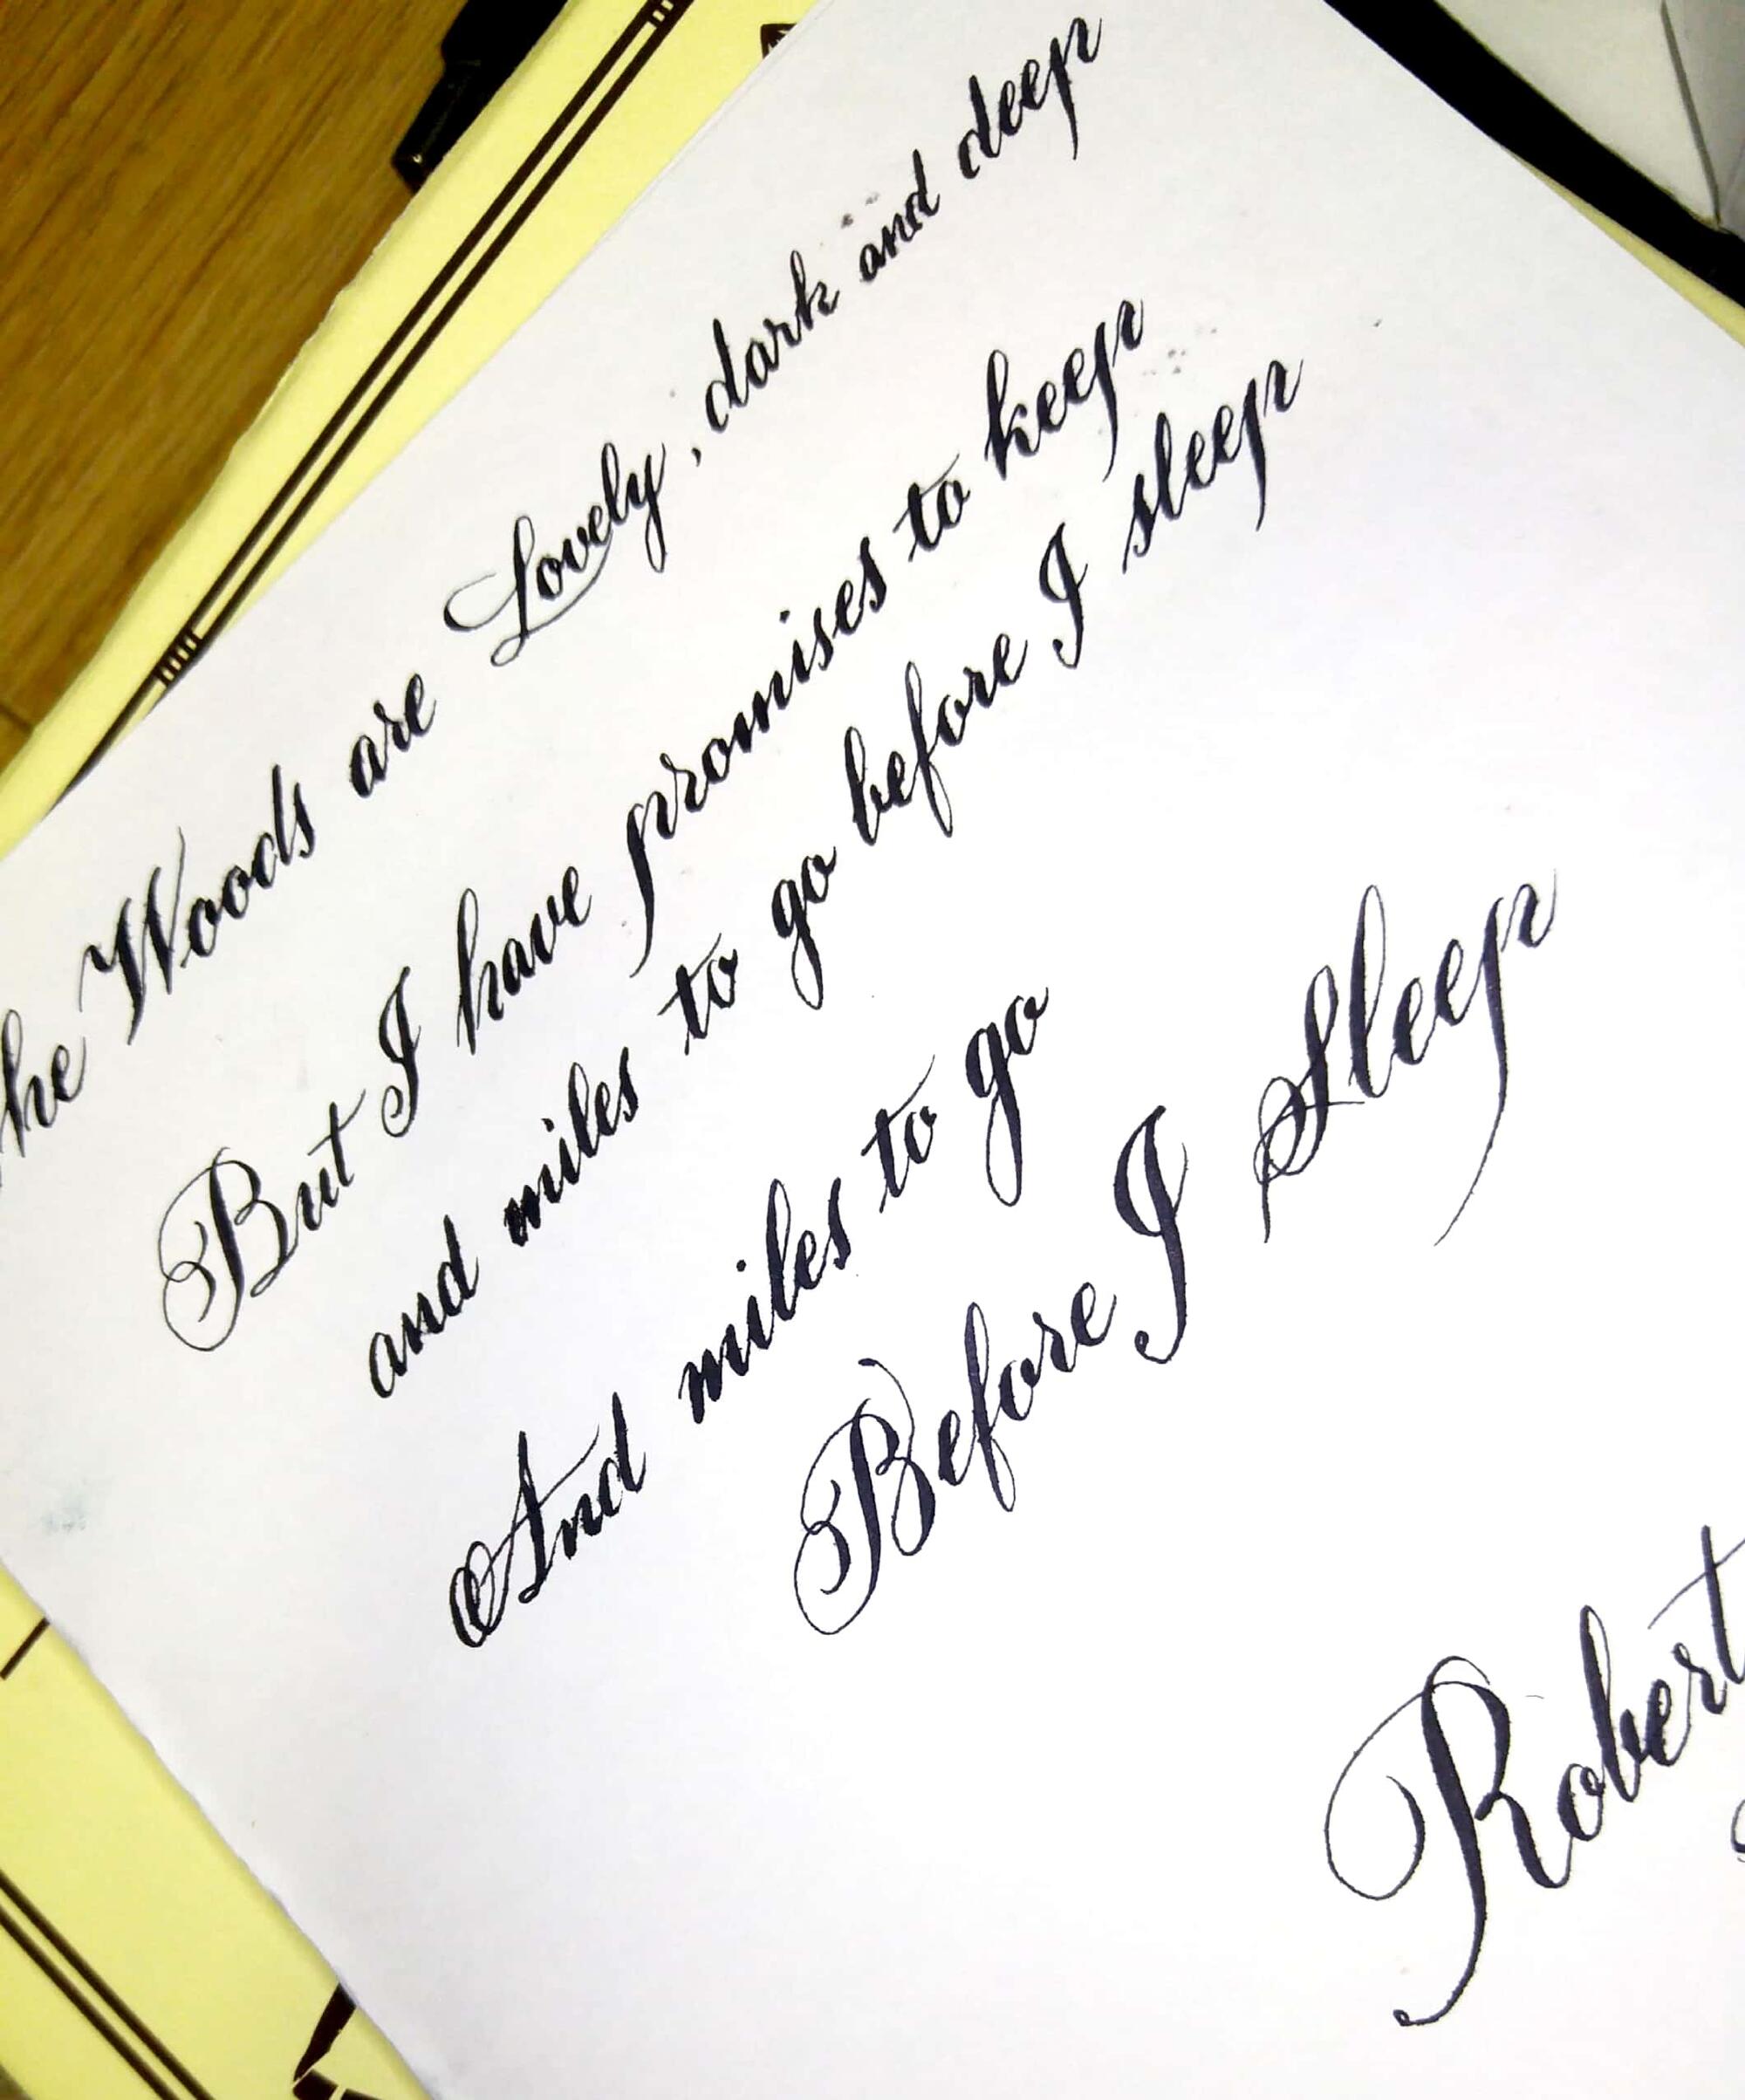 he Woods are Lovely, dark and deep
But I have promises to keep
and miles to go before I sleep
And miles to go
Before I Sleep
Robert